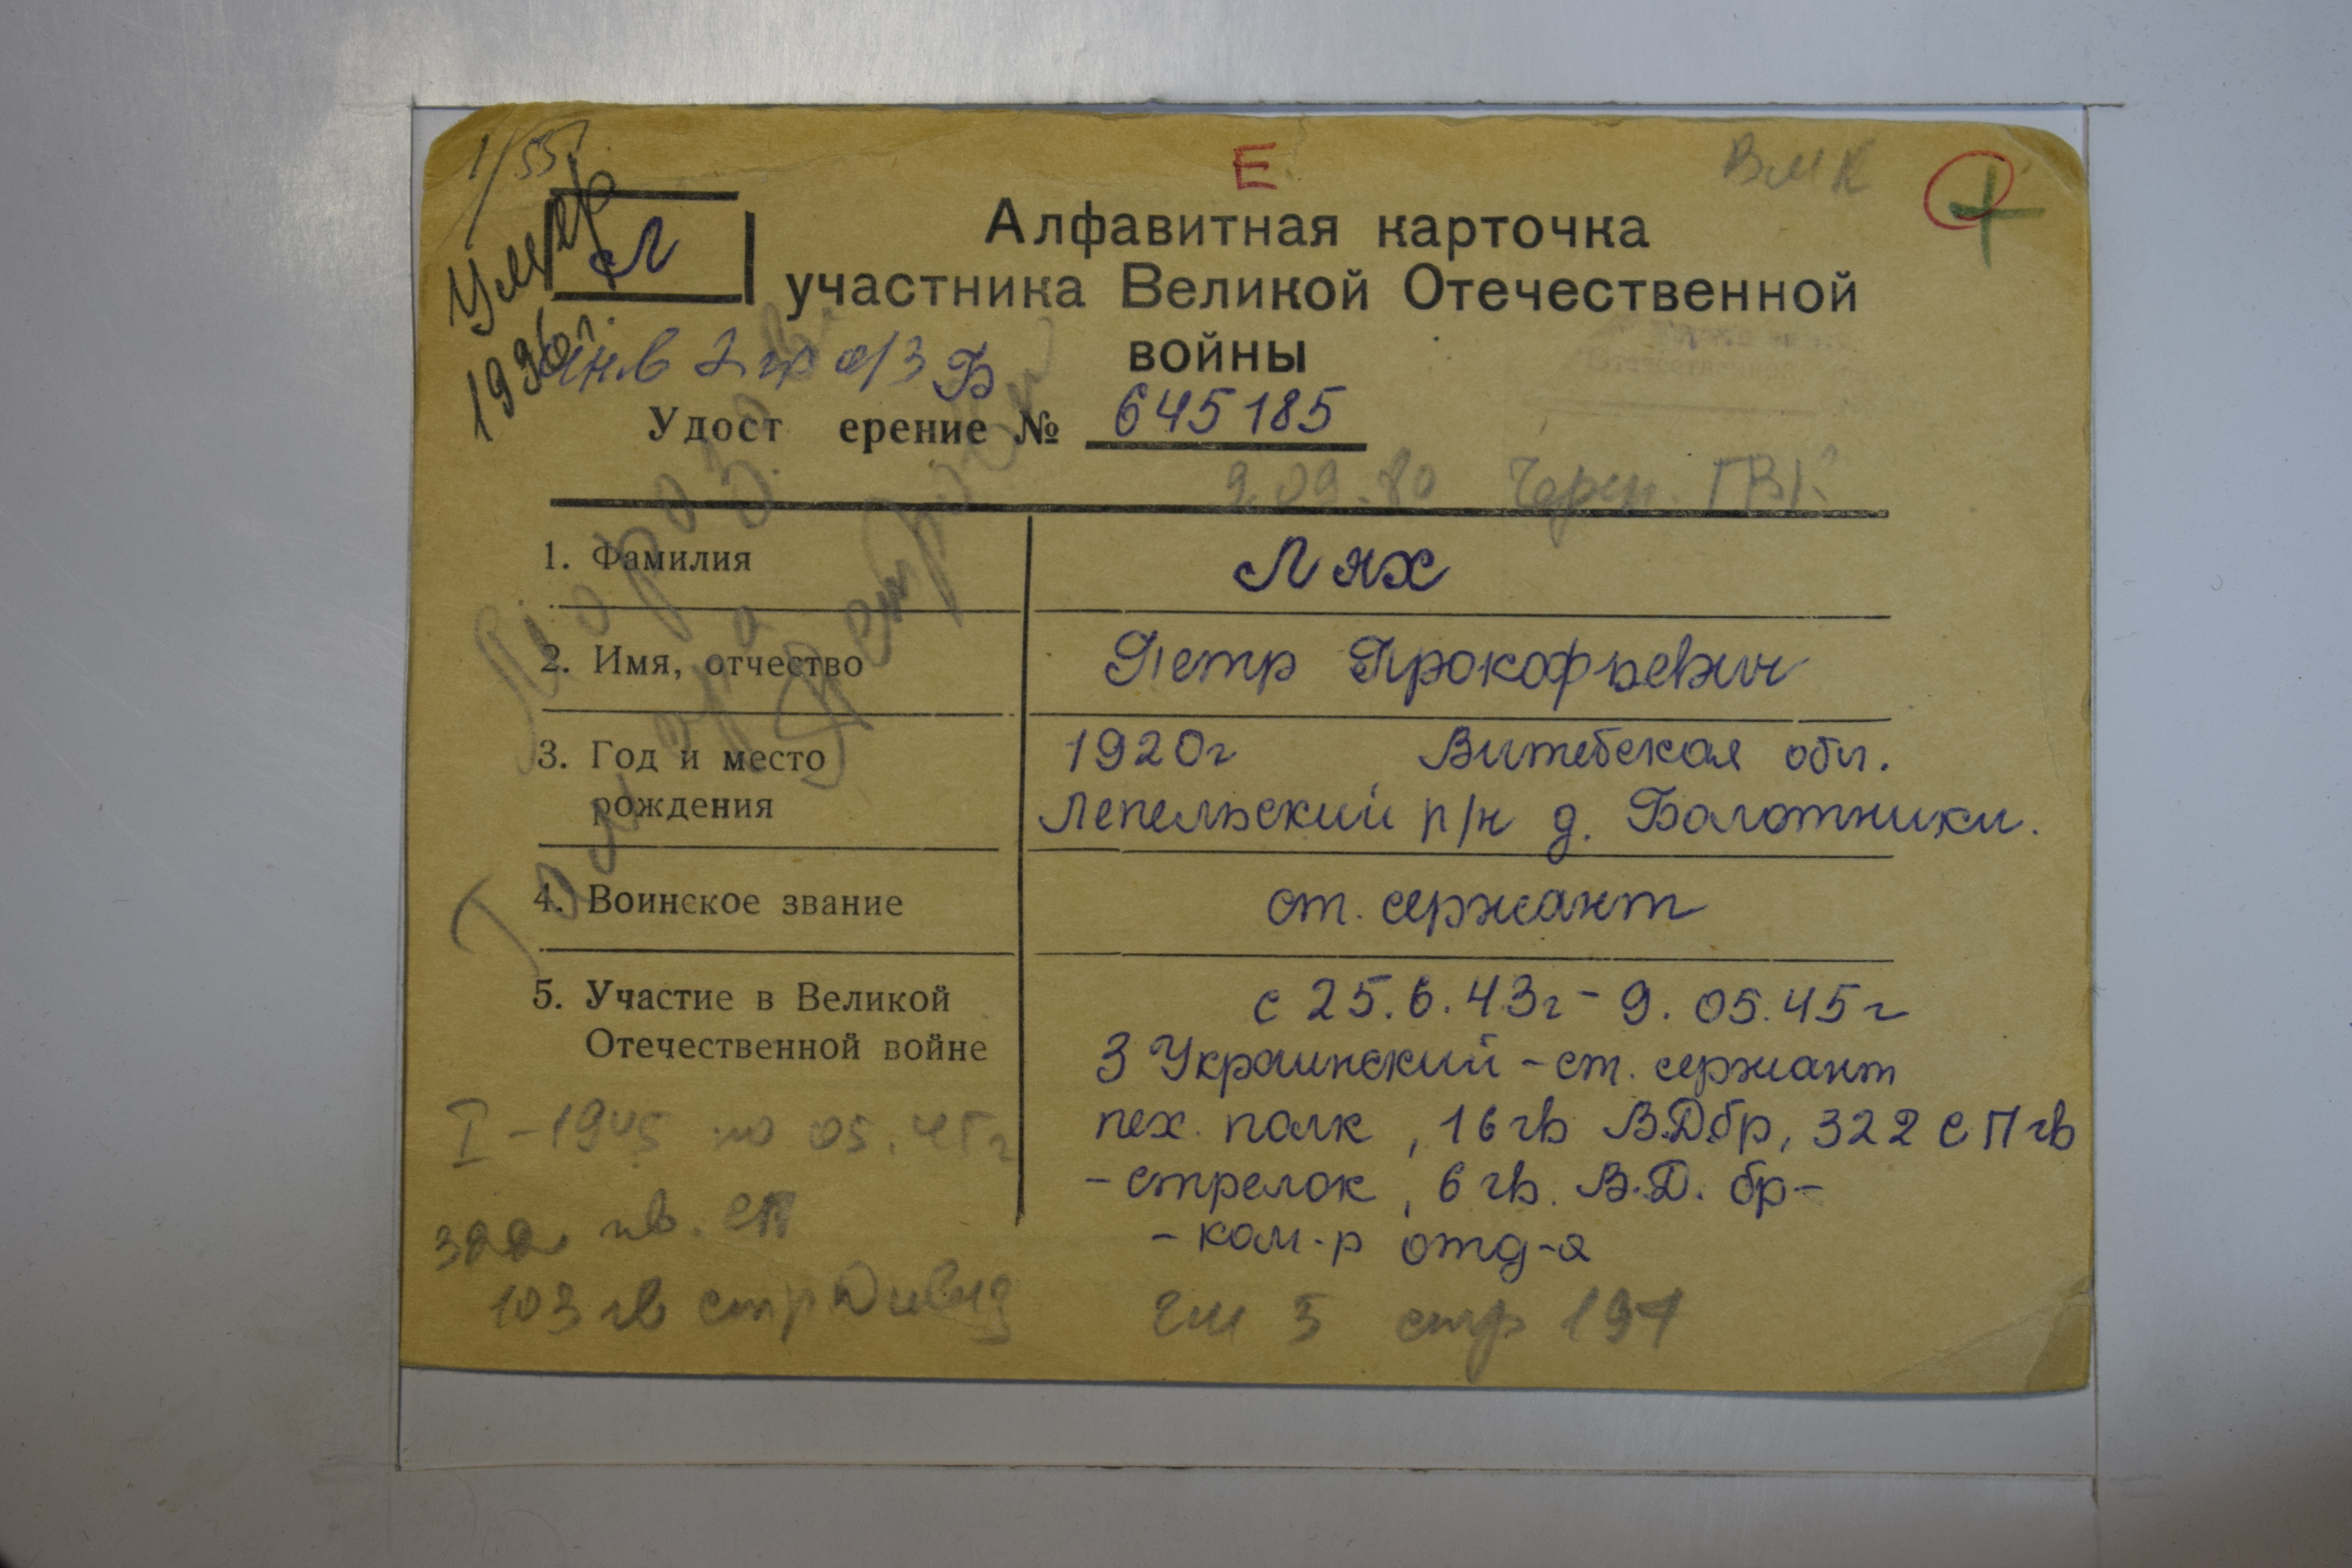 1/55
Умер
1996г.
Л
Е
ВМК
Алфавитная карточка
участника Великой Отечественной
войны
инв 2 гр о/з Б
Удост ерение № 645185
9.09.80 Череп. ГВК
1. Фамилия Лях
2. Имя, отчество Петр Прокофьевич
3. Год и место рождения 1920г Витебская обл.
Лепельский р/н д. Болотники.
4. Воинское звание ст. сержант
5. Участие в Великой Отечественной войне с 25.6.43г - 9.05.45г
3 Украинский - ст. сержант
пех. полк, 16 гв В.Д.бр, 322 СП гв
- стрелок, 6 гв. В.Д. бр-
- ком-р отд-я
I - 1945 по 05.45г
322 гв. СП
103 гв стр Дивиз
стр 197